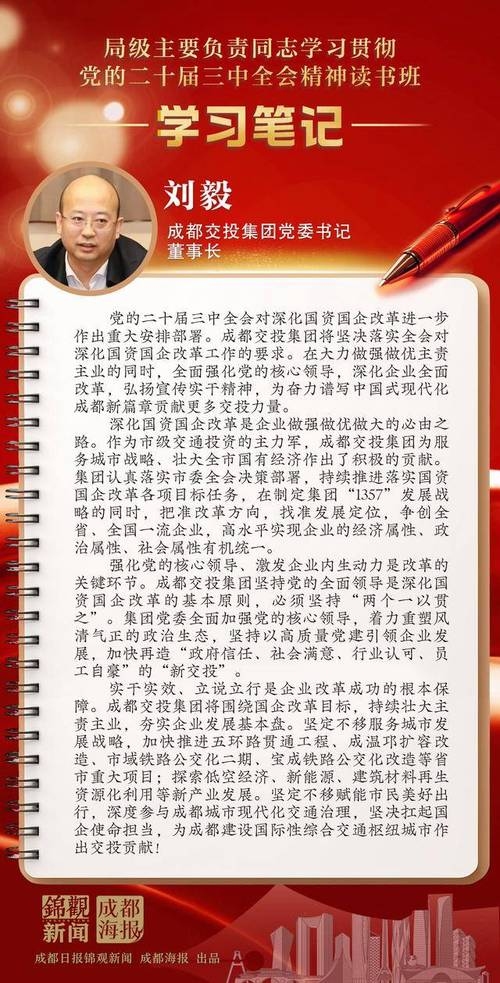 局级主要负责同志学习贯彻
党的二十届三中全会精神读书班
学习笔记
刘毅
成都交投集团党委书记
董事长
党的二十届三中全会对深化国资国企改革进一步
作出重大安排部署。成都交投集团将坚决落实全会对
深化国资国企改革工作的要求。在大力做强做优主责
主业的同时，全面强化党的核心领导，深化企业全面
改革，弘扬宣传实干精神，为奋力谱写中国式现代化
成都新篇章贡献更多交投力量。
深化国资国企改革是企业做强做优做大的必由之
路。作为市级交通投资的主力军，成都交投集团为服
务城市战略、壮大全市国有经济作出了积极的贡献。
集团认真落实市委全会决策部署，持续推进落实国资
国企改革各项目标任务，在制定集团“1357”发展战
略的同时，把准改革方向，找准发展定位，争创全
省、全国一流企业，高水平实现企业的经济属性、政
治属性、社会属性有机统一。
强化党的核心领导、激发企业内生动力是改革的
关键环节。成都交投集团坚持党的全面领导是深化国
资国企改革的基本原则，必须坚持“两个一以贯
之”。集团党委全面加强党的核心领导，着力重塑风
清气正的政治生态，坚持以高质量党建引领企业发
展，加快再造“政府信任、社会满意、行业认可、员
工自豪”的“新交投”。
实干实效、立说立行是企业改革成功的根本保
障。成都交投集团将围绕国企改革目标，持续壮大主
责主业，夯实企业发展基本盘。坚定不移服务城市发
展战略，加快推进五环路贯通工程、成温邛扩容改
造、市域铁路公交化二期、宝成铁路公交化改造等省
市重大项目；探索低空经济、新能源、建筑材料再生
资源化利用等新产业发展。坚定不移赋能市民美好出
行，深度参与成都城市现代化交通治理，坚决扛起国
企使命担当，为成都建设国际性综合交通枢纽城市作
出交投贡献！
錦觀新闻 成都海报
成都日报锦观新闻 成都海报 出品